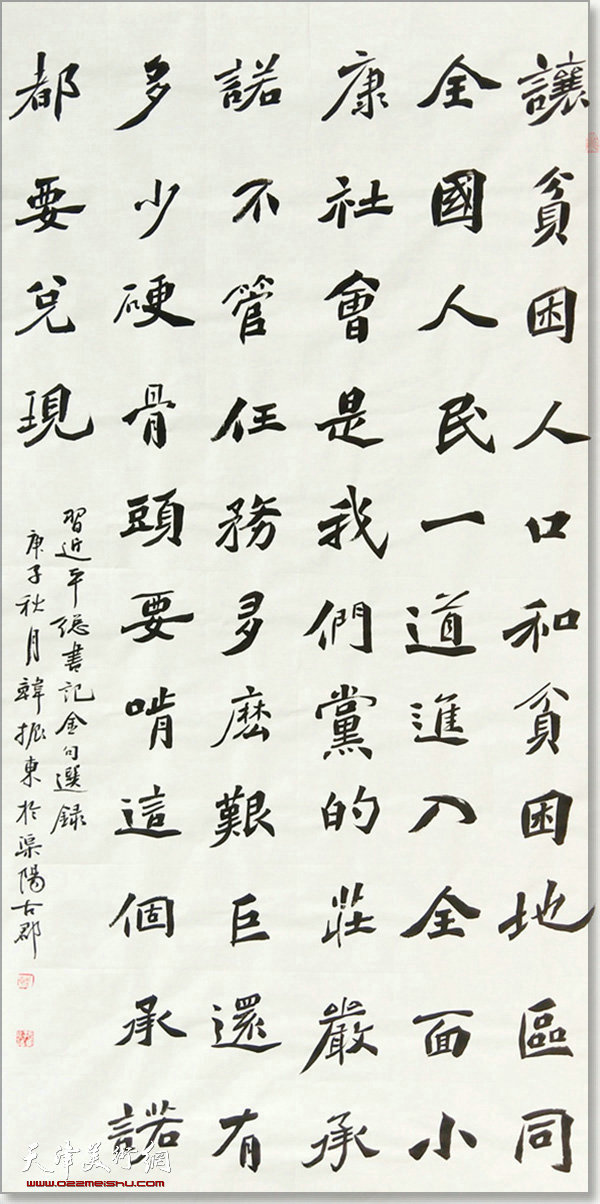 讓貧困人口和貧困地區同
全國人民一道進入全面小
康社會是我們黨的莊嚴承
諾不管任務多麽艱巨還有
多少硬骨頭要啃這個承諾
都要兌現
習近平總書記金句選録
庚子秋月韓振東於渠陽古郡
天津美術網
www.022meishu.com